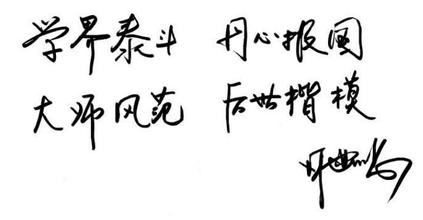 学界泰斗 丹心报国
大师风范 后世楷模